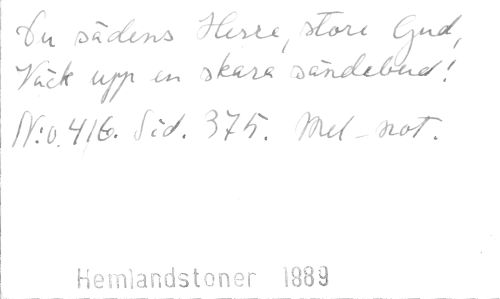 Du sädens Herre, store Gud,
Väck upp en skara sändebud!
N:o. 416. Sid. 375. Mel-not.
Hemlandstoner 1889